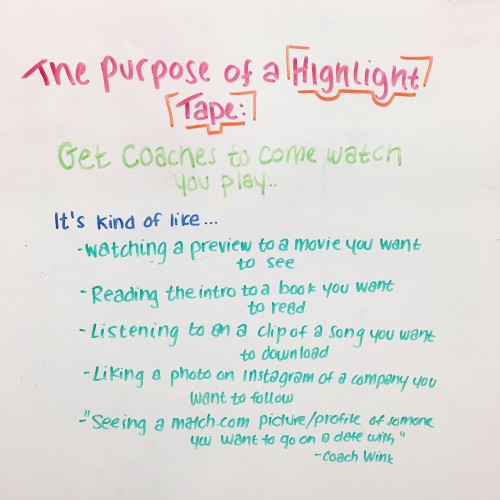 The purpose of a Highlight
Tape:
Get Coaches to come watch
you play..
It's kind of like...
-Watching a preview to a movie you want
to see
-Reading the intro to a book you want
to read
-Listening to a clip of a song you want
to download
-Liking a photo on Instagram of a company you
want to follow
-"Seeing a match.com picture/profile of somone
you want to go on a date with"
-Coach Wink